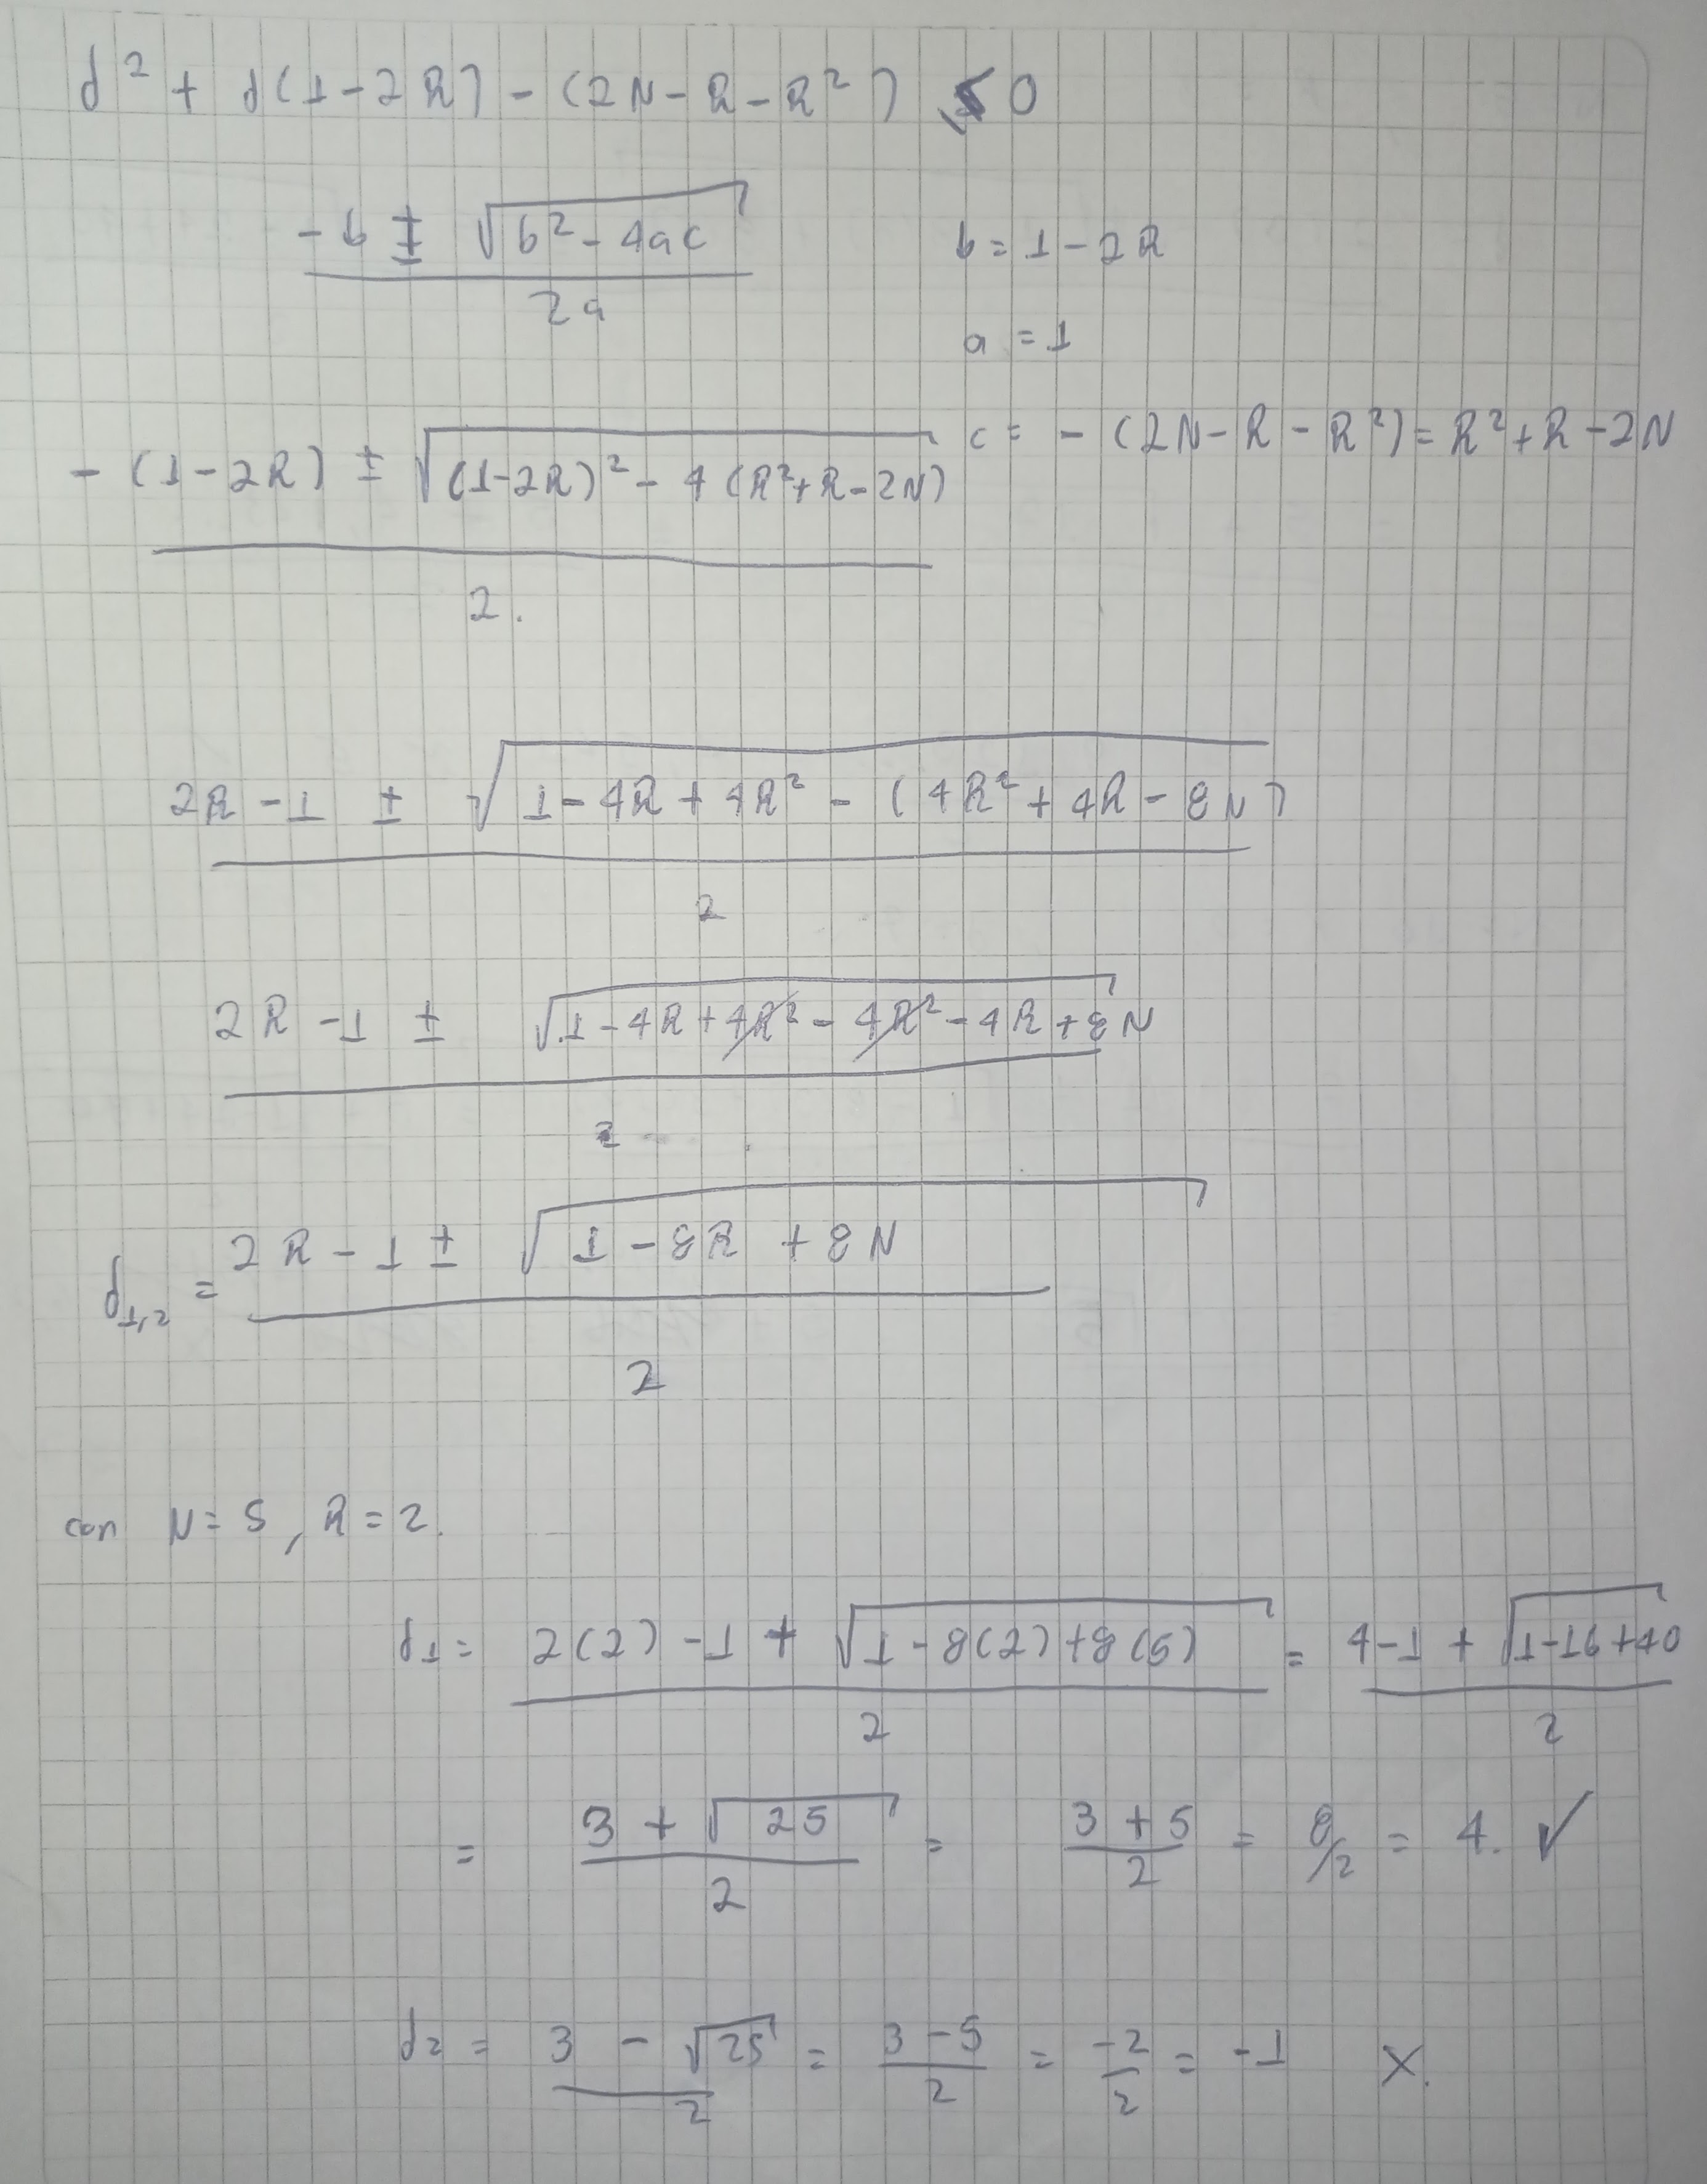 d² + d(1-2R) - (2N-R-R²) ≤ 0
(-b ± √(b²-4ac)) / 2a
b = 1-2R
a = 1
c = -(2N-R-R²) = R²+R-2N
(-(1-2R) ± √((1-2R)² - 4(R²+R-2N))) / 2.
(2R-1 ± √(1-4R+4R² - (4R²+4R-8N))) / 2
(2R-1 ± √(1-4R+4R²-4R²-4R+8N)) / 2
d₁,₂ = (2R-1 ± √(1-8R+8N)) / 2
con N=5, R=2.
d1 = (2(2)-1 + √(1-8(2)+8(5))) / 2 = (4-1 + √(1-16+40)) / 2
= (3 + √25) / 2 = (3+5) / 2 = 8/2 = 4. ✓
d2 = (3 - √25) / 2 = (3-5) / 2 = -2/2 = -1 X.